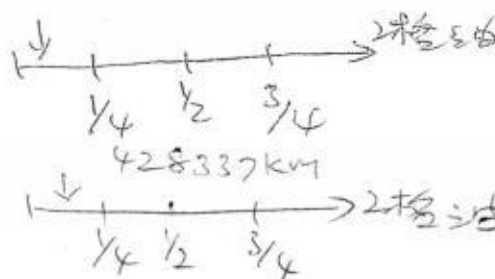 2格油
1/4 1/2 3/4
428337km
2格油
1/4 1/2 3/4